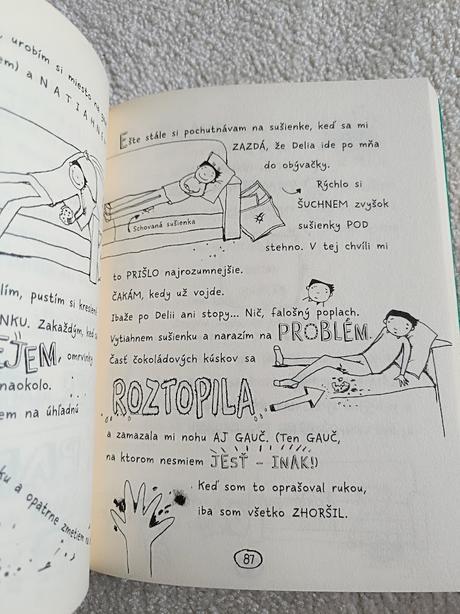 , urobím si miesto na
em) a NATIAHNE
lím, pustím si kreslen
NKU. Zakaždým, keď
EJEM, omrvinky
naokolo.
em na úhľadnú
ku a opatrne zmetiem
Ešte stále si pochutnávam na sušienke, keď sa mi
ZAZDÁ, že Delia ide po mňa
do obývačky.
Rýchlo si
ŠUCHNEM zvyšok
sušienky POD
stehno. V tej chvíli mi
Schovaná sušienka
to PRIŠLO najrozumnejšie.
ČAKÁM, kedy už vojde.
Ibaže po Delii ani stopy... Nič, falošný poplach.
Vytiahnem sušienku a narazím na PROBLÉM.
Časť čokoládových kúskov sa
ROZTOPILA
a zamazala mi nohu AJ GAUČ. (Ten GAUČ,
na ktorom nesmiem JESŤ – INAK!)
Keď som to oprašoval rukou,
iba som všetko ZHORŠIL.
87